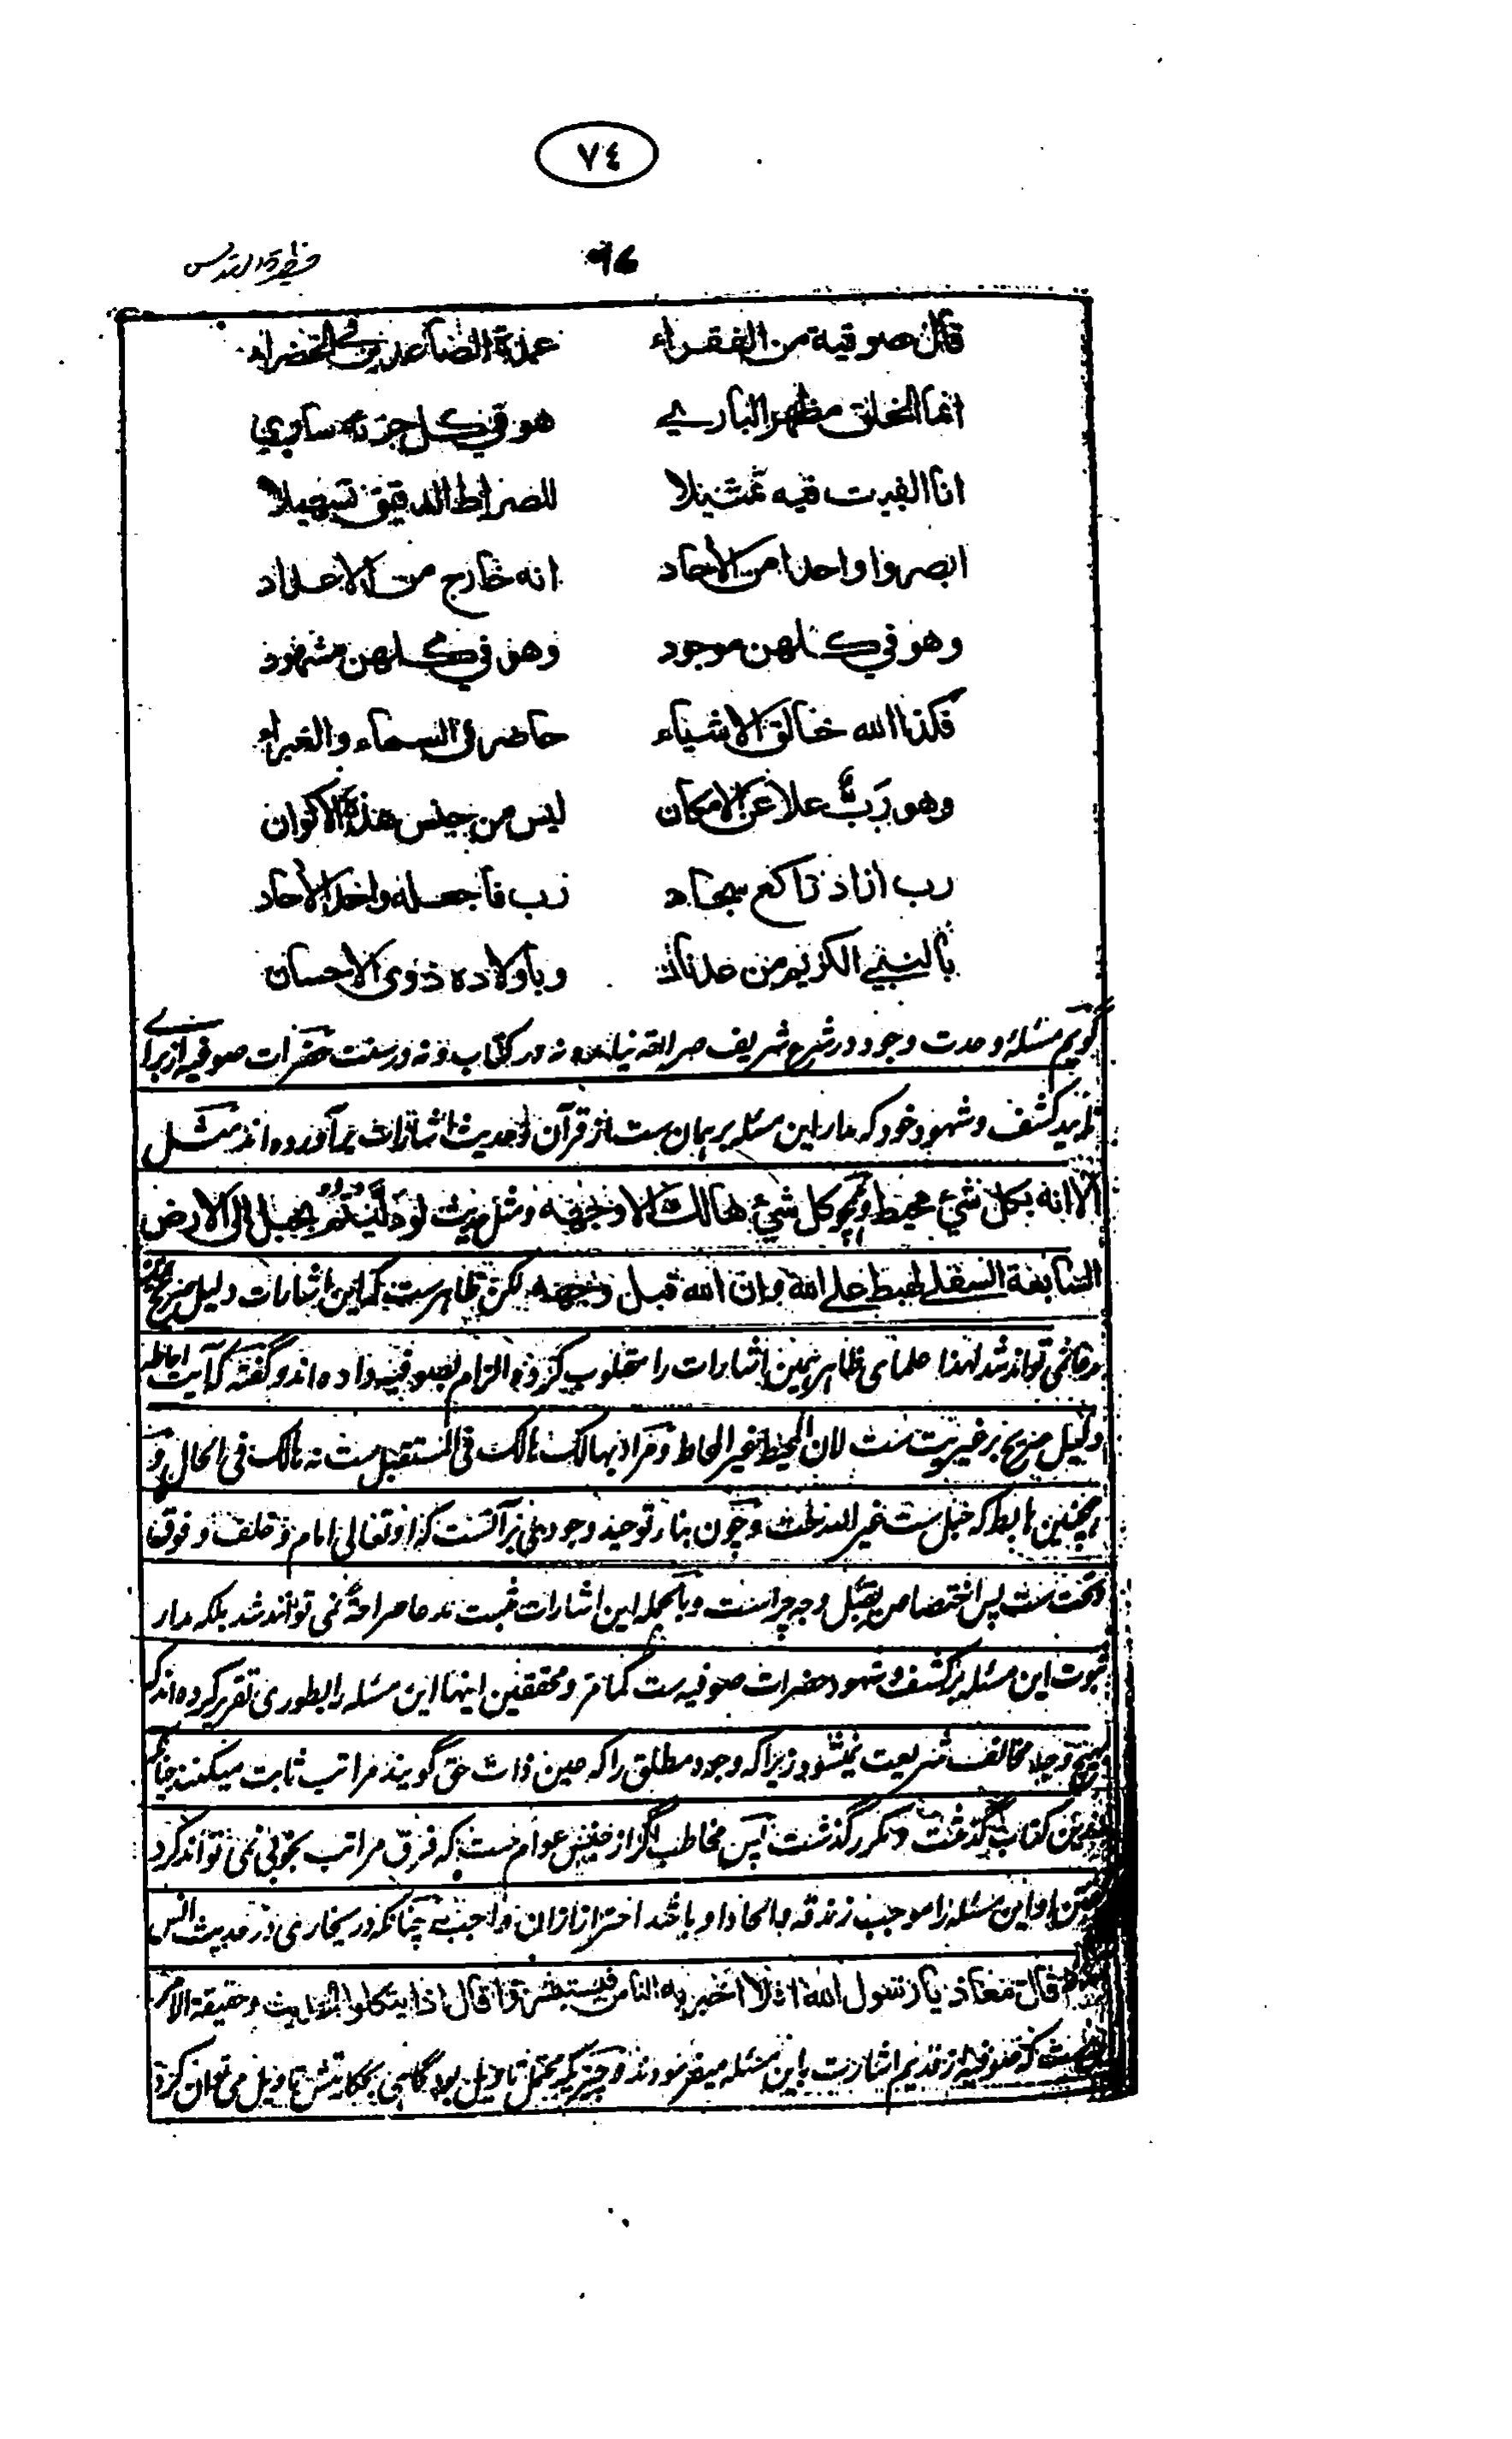 ٧٤
٩٤ حظيرة القدس
قال صوفية من الفقراء عمدة الصاعدين في الخضراء
انما الخلق مظهر الباري هو في كل جزئه ساري
انا الفيت فيه تمثيلا للصراط الدقيق تسهيلا
ابصروا واحدا من الأحاد انه خارج من الاعداد
وهو في كلهن موجود وهو في كلهن مشهود
فكذا الله خالق الاشياء حاضر في السماء والغبراء
وهو رب علا عن الامكان ليس من جنس هذه الاكوان
رب انا ذ تاكع رب فاجعله واحد الأحاد
بالنبي الكريم من عدنان وباولاده ذوي الاحسان
گویم مسئله وحدت وجود در شرع شریف صراحة نیامده نه در کتاب و نه در سنت حضرات صوفیه از برای
تائید کشف و شهود خود که مدار این مسئله بر همان ست از قرآن و حدیث اشارات برآورده اند مثل
الا انه بكل شيء محيط و نحو كل شيء هالك الا وجهه و مثل حدیث لو دليتم بحبل الى الارض
السابعة السفلى لهبط على الله وان الله قبل وجهه لکن ظاهرست که این اشارات دلیل صریح
مدعا نمی تواند شد لهذا علمای ظاهر همین اشارات را مقلوب کرده الزام بصوفیه داده اند و گفته که آیت احاطه
دلیل صریح بر غیریت ست لان المحیط غیر المحاط و مراد بهالک هالک فی المستقبل ست نه هالک فی الحال و
همچنین هابط که حبل ست غیر الله است و چون بناء توحید وجودی بر آنست که او تعالی امام و خلف و فوق
و تحت ست پس اختصاص بقبل وجه چراست و بالجمله این اشارات مثبت مدعا صراحةً نمی توانند شد بلکه مدار
ثبوت این مسئله بر کشف و شهود حضرات صوفیه ست کما مر و محققین اینها این مسئله را بطوری تقریر کرده اند که
بهیچ وجه مخالف شریعت نمیشود زیرا که وجود مطلق را که عین ذات حق گویند مراتب ثابت میکنند چنانکه
درین کتاب گذشت و مکرر گذشت پس مخاطب اگر از جنس عوام ست که فرق مراتب بخوبی نمی تواند کرد
این مسئله را موجب زندقه و الحاد او باشد احتراز ازان واجب چنانکه در بخاری در حدیث انس
قال معاذ يا رسول الله افلا اخبر به الناس فيستبشروا قال اذا يتكلوا الحديث وحقيقة الامر
که صوفیه از قدیم اشارت باین مسئله میفرمودند و چیزیکه محتمل تاویل بود گاهی بحکایتش تاویل می توان کرد